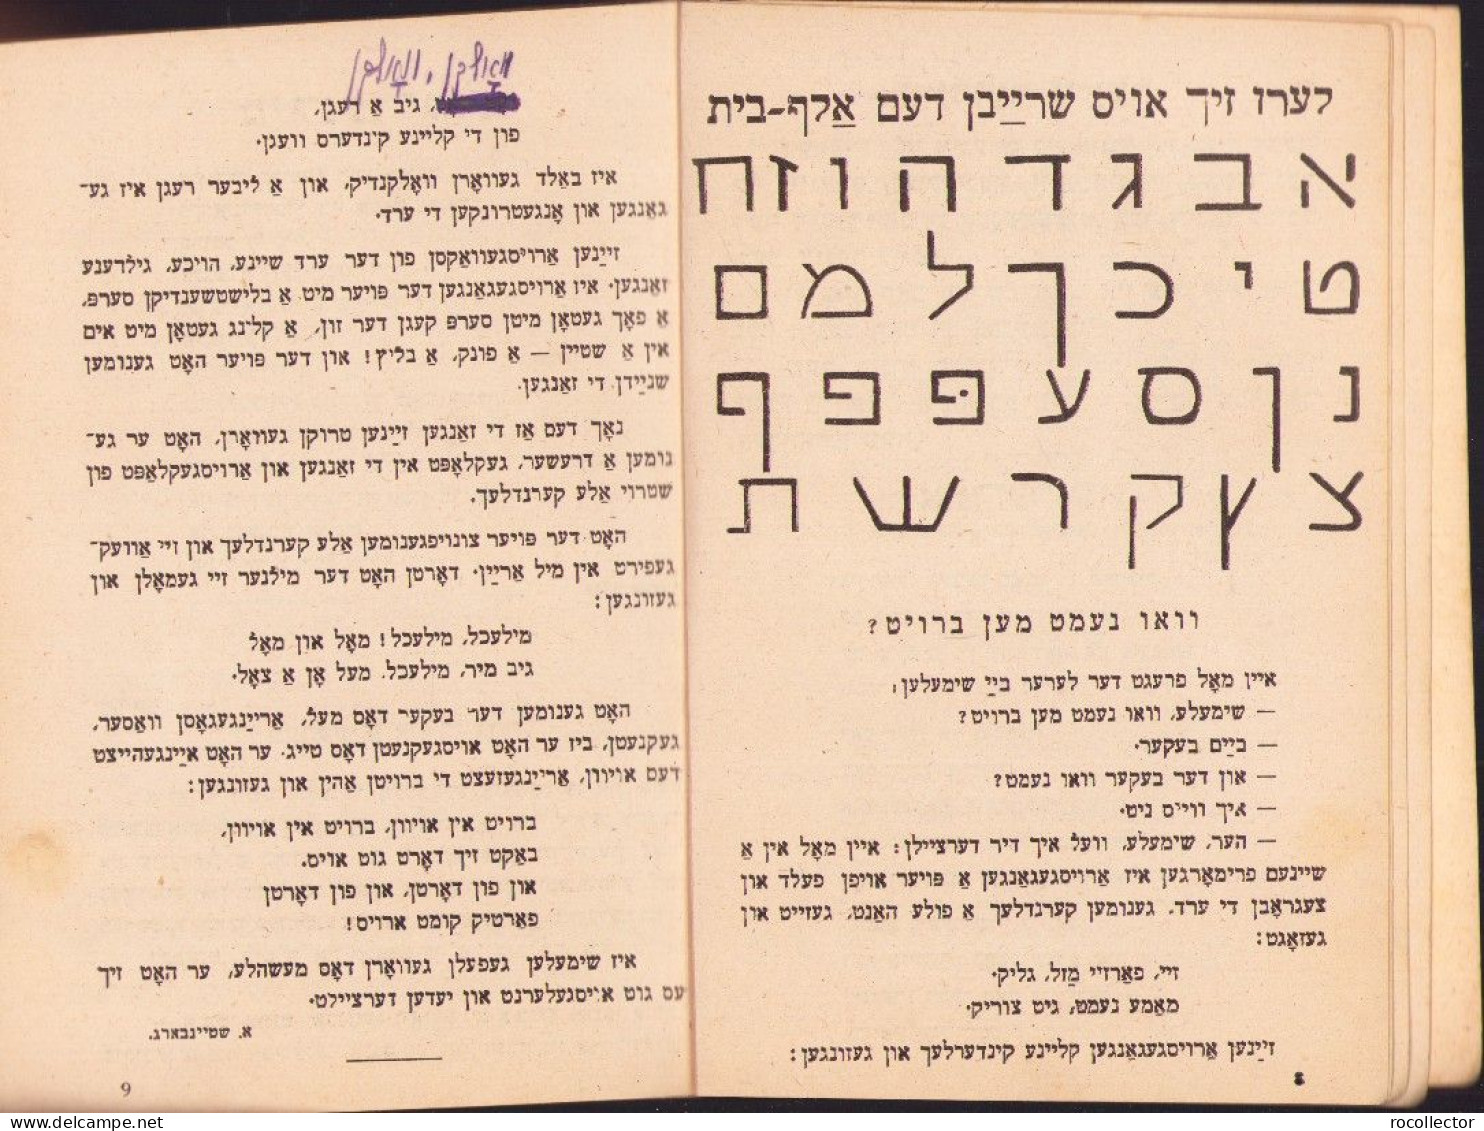 לערו זיך אויס שרייַבן דעם אַלף-בית
א ב ג ד ה ו ז ח
ט י כ ך ל מ ם
נ ן ס ע פּ פ ף
צ ץ ק ר ש ת
וואו נעמט מען ברויט?
איין מאָל פרעגט דער לערער בייַ שימעלען:
— שימעלע, וואו נעמט מען ברויט?
— בייַם בעקער.
— און דער בעקער וואו נעמט?
— איך ווייס ניט.
— הער, שימעלע, וועל איך דיר דערציילן: איין מאָל אין אַ
שיינעם פרימאָרגען איז אַרויסגעגאַנגען אַ פּויער אויפן פעלד און
צעגראָבן די ערד, גענומען קערנדלעך אַ פולע האַנט, געזייט און
געזאָגט:
זיי, פאַרזיי מַזל, גליק.
מאַמע נעמט, גיט צוריק.
זייַנען אַרויסגעגאַנגען קליינע קינדערלעך און געזונגען:
8
וואָלקן, וואָלקן
גיב אַ רעגן,
פון די קליינע קינדערס וועגן.
איז באַלד געוואָרן וואָלקנדיק, און אַ ליבער רעגן איז גע־
גאַנגען און אָנגעטרונקען די ערד.
זייַנען אַרויסגעוואַקסן פון דער ערד שיינע, הויכע, גילדענע
זאַנגען. איז אַרויסגעגאַנגען דער פּויער מיט אַ בלישטשענדיקן סערפּ,
אַ פאָך געטאָן מיטן סערפּ קעגן דער זון, אַ קלינג געטאָן מיט אים
אין אַ שטיין — אַ פונק, אַ בליץ! און דער פּויער האָט גענומען
שנייַדן די זאַנגען.
נאָך דעם אַז די זאַנגען זייַנען טרוקן געוואָרן, האָט ער גע־
נומען אַ דרעשער, געקלאַפּט אין די זאַנגען און אַרויסגעקלאַפּט פון
שטרוי אַלע קערנדלעך.
האָט דער פּויער צונויפגענומען אַלע קערנדלעך און זיי אַוועק־
געפירט אין מיל אַרייַן. דאָרטן האָט דער מילנער זיי געמאָלן און
געזונגען:
מילעכל, מילעכל! מאָל און מאָל
גיב מיר, מילעכל, מעל אָן אַ צאָל.
האָט גענומען דער בעקער דאָס מעל, אַרייַנגעגאָסן וואַסער,
געקנעטן, ביז ער האָט אויסגעקנעטן דאָס טייג. ער האָט אייַנגעהייצט
דעם אויוון, אַרייַנגעזעצט די ברויטן אַהין און געזונגען:
ברויט אין אויוון, ברויט אין אויוון,
באַקט זיך דאָרט גוט אויס,
און פון דאָרטן, און פון דאָרטן
פאַרטיק קומט ארויס!
איז שימעלען געפעלן געוואָרן דאָס מעשהלע, ער האָט זיך
עס גוט אויסגעלערנט און יעדען דערציילט.
א. שטיינבארג.
9
www.delcampe.net
rocollector